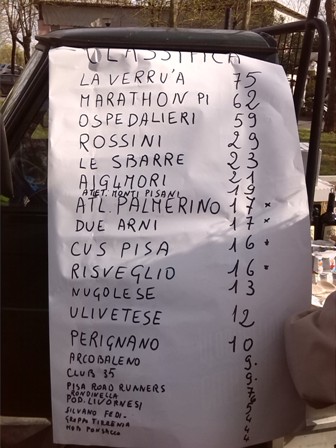 CLASSIFICA
LA VERRU'A 75
MARATHON PI 62
OSPEDALIERI 59
ROSSINI 29
LE SBARRE 23
AIGLMORI 21
ATET. MONTI PISANI 19
ATL. PALMERINO 17 *
DUE ARNI 17 *
CUS PISA 16 *
RISVEGLIO 16 *
NUGOLESE 13
ULIVETESE 12
PERIGNANO 10
ARCOBALENO 9.
CLUB 35 9.
PISA ROAD RUNNERS 7
RONDINELLA
POD. LIVORNESI 5
SILVANO FEDI. 4
4
4